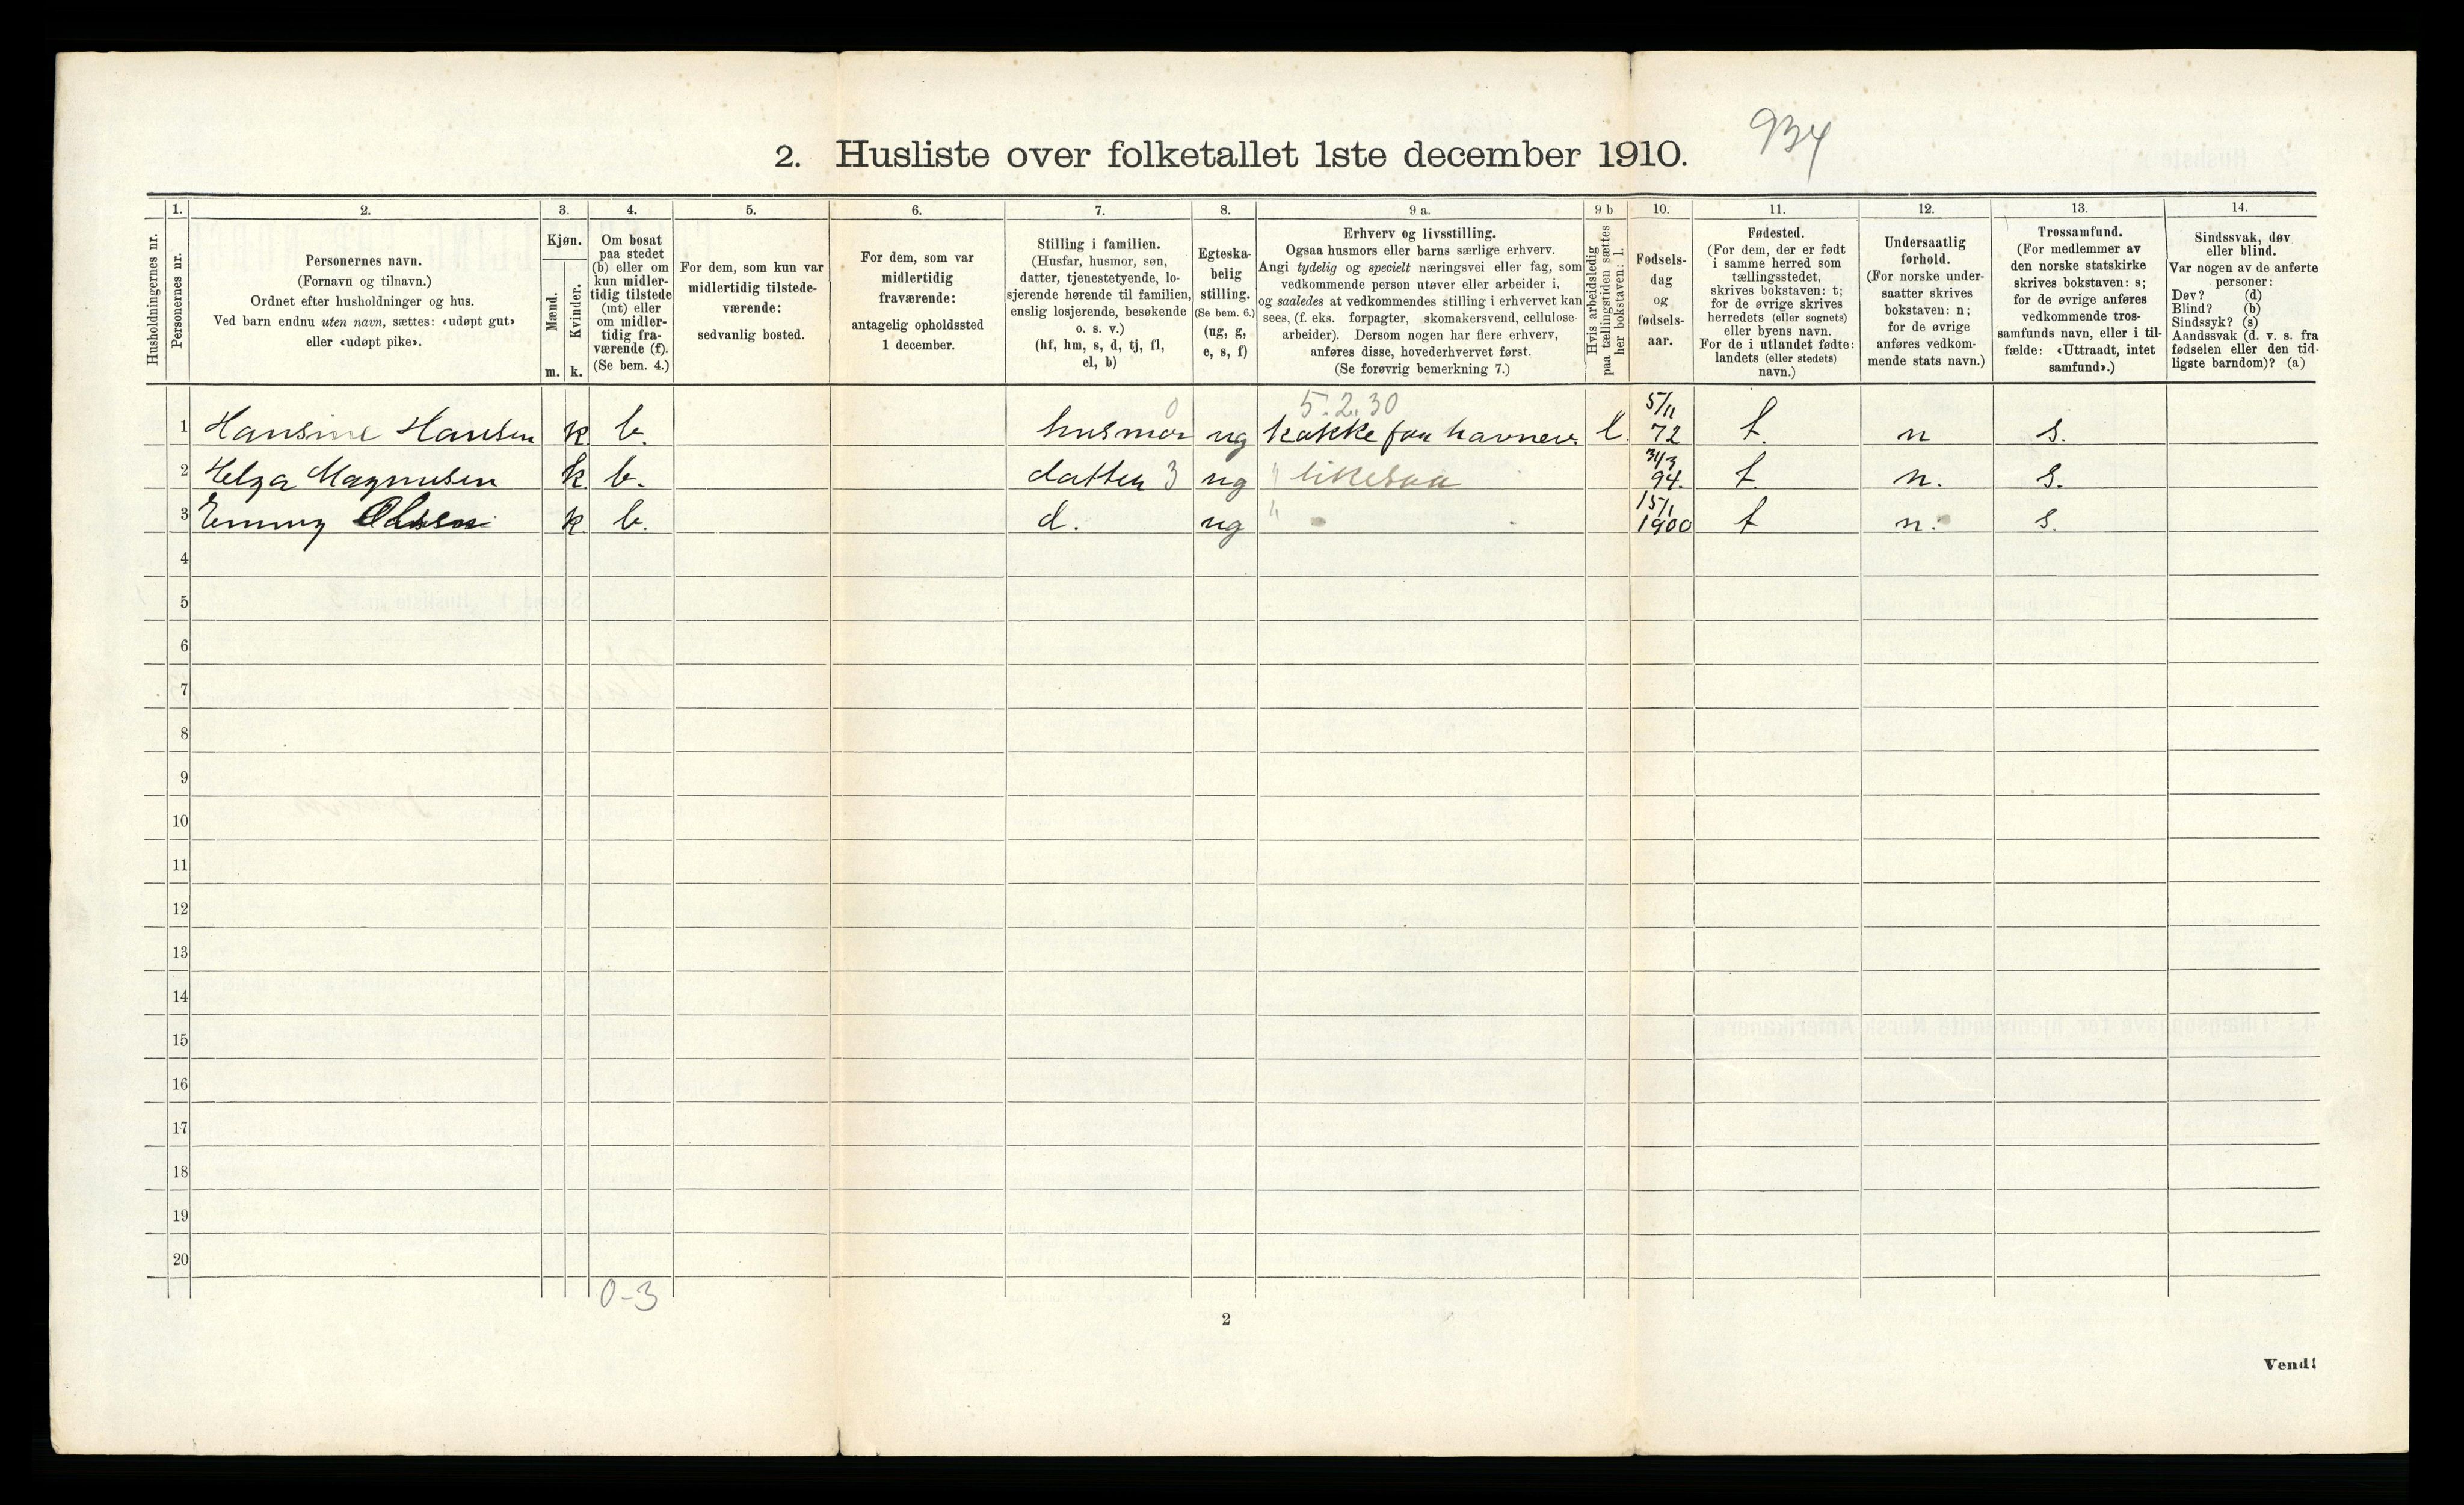 934
2. Husliste over folketallet 1ste december 1910.
Husholdningernes nr.
1.
Personernes nr.
2.
Personernes navn.
(Fornavn og tilnavn.)
Ordnet efter husholdninger og hus.
Ved barn endnu uten navn, sættes: «udøpt gut»
eller «udøpt pike».
3.
Kjøn.
Mænd.
Kvinder.
m. k.
4.
Om bosat
paa stedet
(b) eller om
kun midler-
tidig tilstede
(mt) eller
om midler-
tidig fra-
værende (f).
(Se bem. 4.)
5.
For dem, som kun var
midlertidig tilstede-
værende:
sedvanlig bosted.
6.
For dem, som var
midlertidig
fraværende:
antagelig opholdssted
1 december.
7.
Stilling i familien.
(Husfar, husmor, søn,
datter, tjenestetyende, lo-
sjerende hørende til familien,
enslig losjerende, besøkende
o. s. v.)
(hf, hm, s, d, tj, fl,
el, b)
8.
Egteska-
belig
stilling.
(Se bem. 6.)
(ug, g,
e, s, f)
9 a.
Erhverv og livsstilling.
Ogsaa husmors eller barns særlige erhverv.
Angi tydelig og specielt næringsvei eller fag, som
vedkommende person utøver eller arbeider i,
og saaledes at vedkommendes stilling i erhvervet kan
sees, (f. eks. forpagter, skomakersvend, cellulose-
arbeider). Dersom nogen har flere erhverv,
anføres disse, hovederhvervet først.
(Se forøvrig bemerkning 7.)
9 b
Hvis arbeidsledig
paa tællingstiden sættes
her bokstaven: l.
10.
Fødsels-
dag
og
fødsels-
aar.
11.
Fødested.
(For dem, der er født
i samme herred som
tællingsstedet,
skrives bokstaven: t;
for de øvrige skrives
herredets (eller sognets)
eller byens navn.
For de i utlandet fødte:
landets (eller stedets)
navn.)
12.
Undersaatlig
forhold.
(For norske under-
saatter skrives
bokstaven: n;
for de øvrige
anføres vedkom-
mende stats navn.)
13.
Trossamfund.
(For medlemmer av
den norske statskirke
skrives bokstaven: s;
for de øvrige anføres
vedkommende tros-
samfunds navn, eller i til-
fælde: «Uttraadt, intet
samfund».)
14.
Sindssvak, døv
eller blind.
Var nogen av de anførte
personer:
Døv? (d)
Blind? (b)
Sindssyk? (s)
Aandssvak (d. v. s. fra
fødselen eller den tid-
ligste barndom)? (a)
0 5.2.30 5/11
1 Hansine Hansen k. b. husmor ug kokke paa havnev. l. 72 t. n s.
31/3
2 Helga Magnusen k. b. datter 3 ug " likesaa 94. t. n. s.
15/1
3 Emmy Olsen k. b. d. ug " 1900 t n. s.
4
5
6
7
8
9
10
11
12
13
14
15
16
17
18
19
20
0-3
2
Vend!